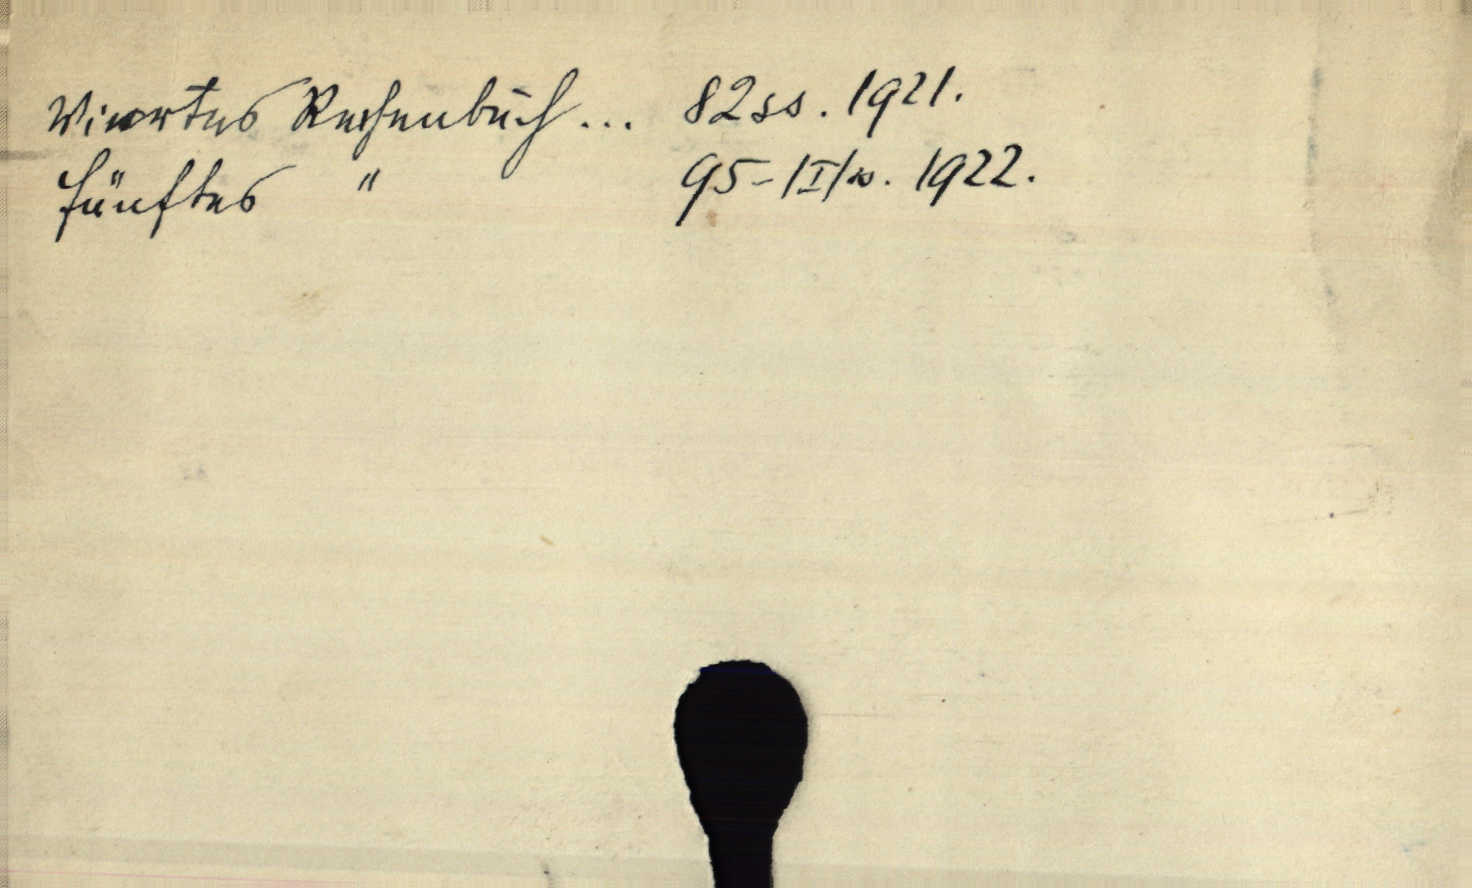 Viertes Rechenbuch ... 82 ss. 1921.
Fünftes " 95-|II| ss. 1922.